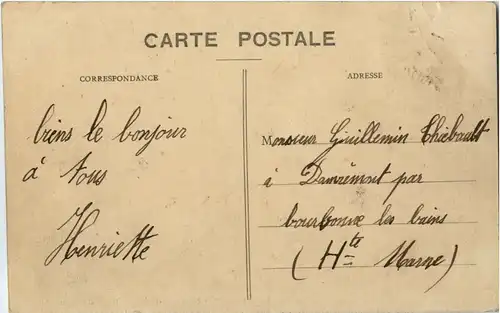 CARTE POSTALE
CORRESPONDANCE
biens le bonjour
à tous
Henriette
ADRESSE
Monsieur Guillemin Thiébault
à Damrémont par
bourbonne les bains
(Hte Marne)